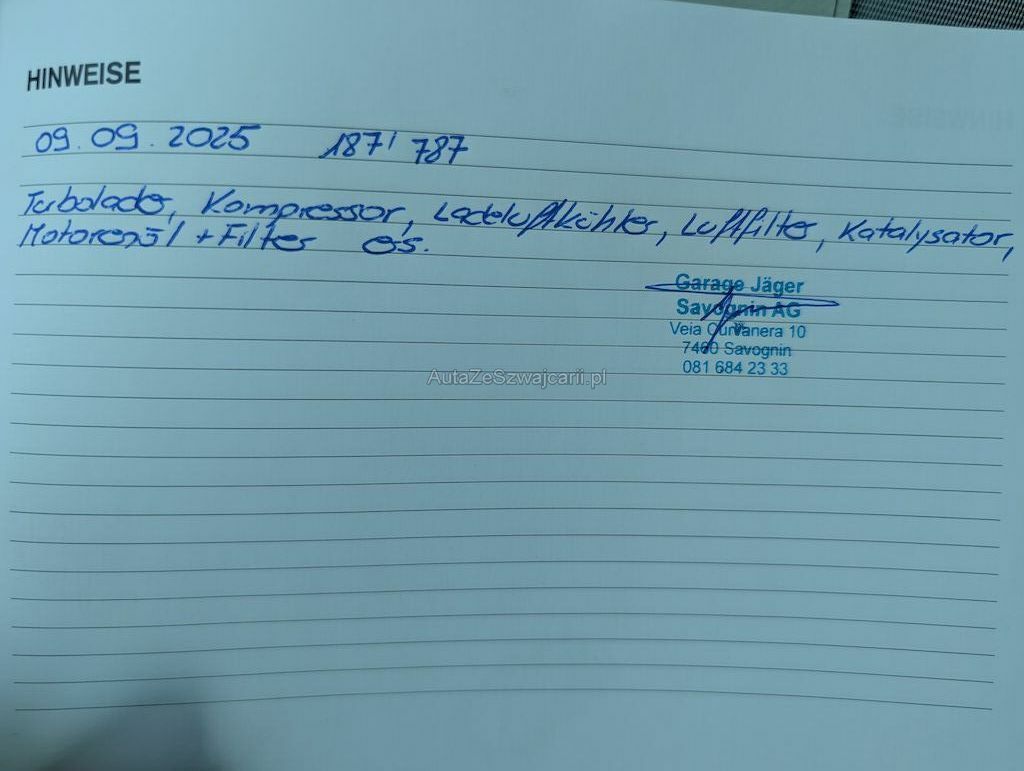 HINWEISE
09.09.2025 187'787
Turbolader, Kompressor, Ladeluftkühler, Luftfilter, Katalysator,
Motorenöl + Filter es.
Garage Jäger
Savognin AG
Veia Curvanera 10
7460 Savognin
081 684 23 33
AutaZeSzwajcarii.pl